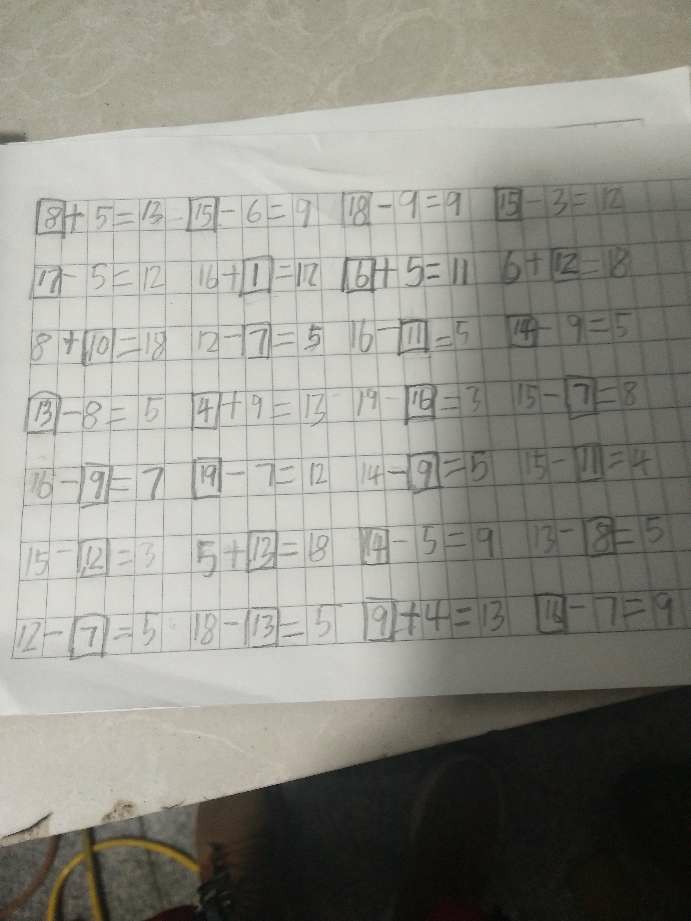 8 + 5 = 13 15 - 6 = 9 18 - 9 = 9 15 - 3 = 12
17 - 5 = 12 16 + 1 = 17 6 + 5 = 11 6 + 12 = 18
8 + 10 = 18 12 - 7 = 5 16 - 11 = 5 14 - 9 = 5
13 - 8 = 5 4 + 9 = 13 19 - 16 = 3 15 - 7 = 8
16 - 9 = 7 19 - 7 = 12 14 - 9 = 5 15 - 11 = 4
15 - 12 = 3 5 + 13 = 18 14 - 5 = 9 13 - 8 = 5
12 - 7 = 5 18 - 13 = 5 9 + 4 = 13 16 - 7 = 9